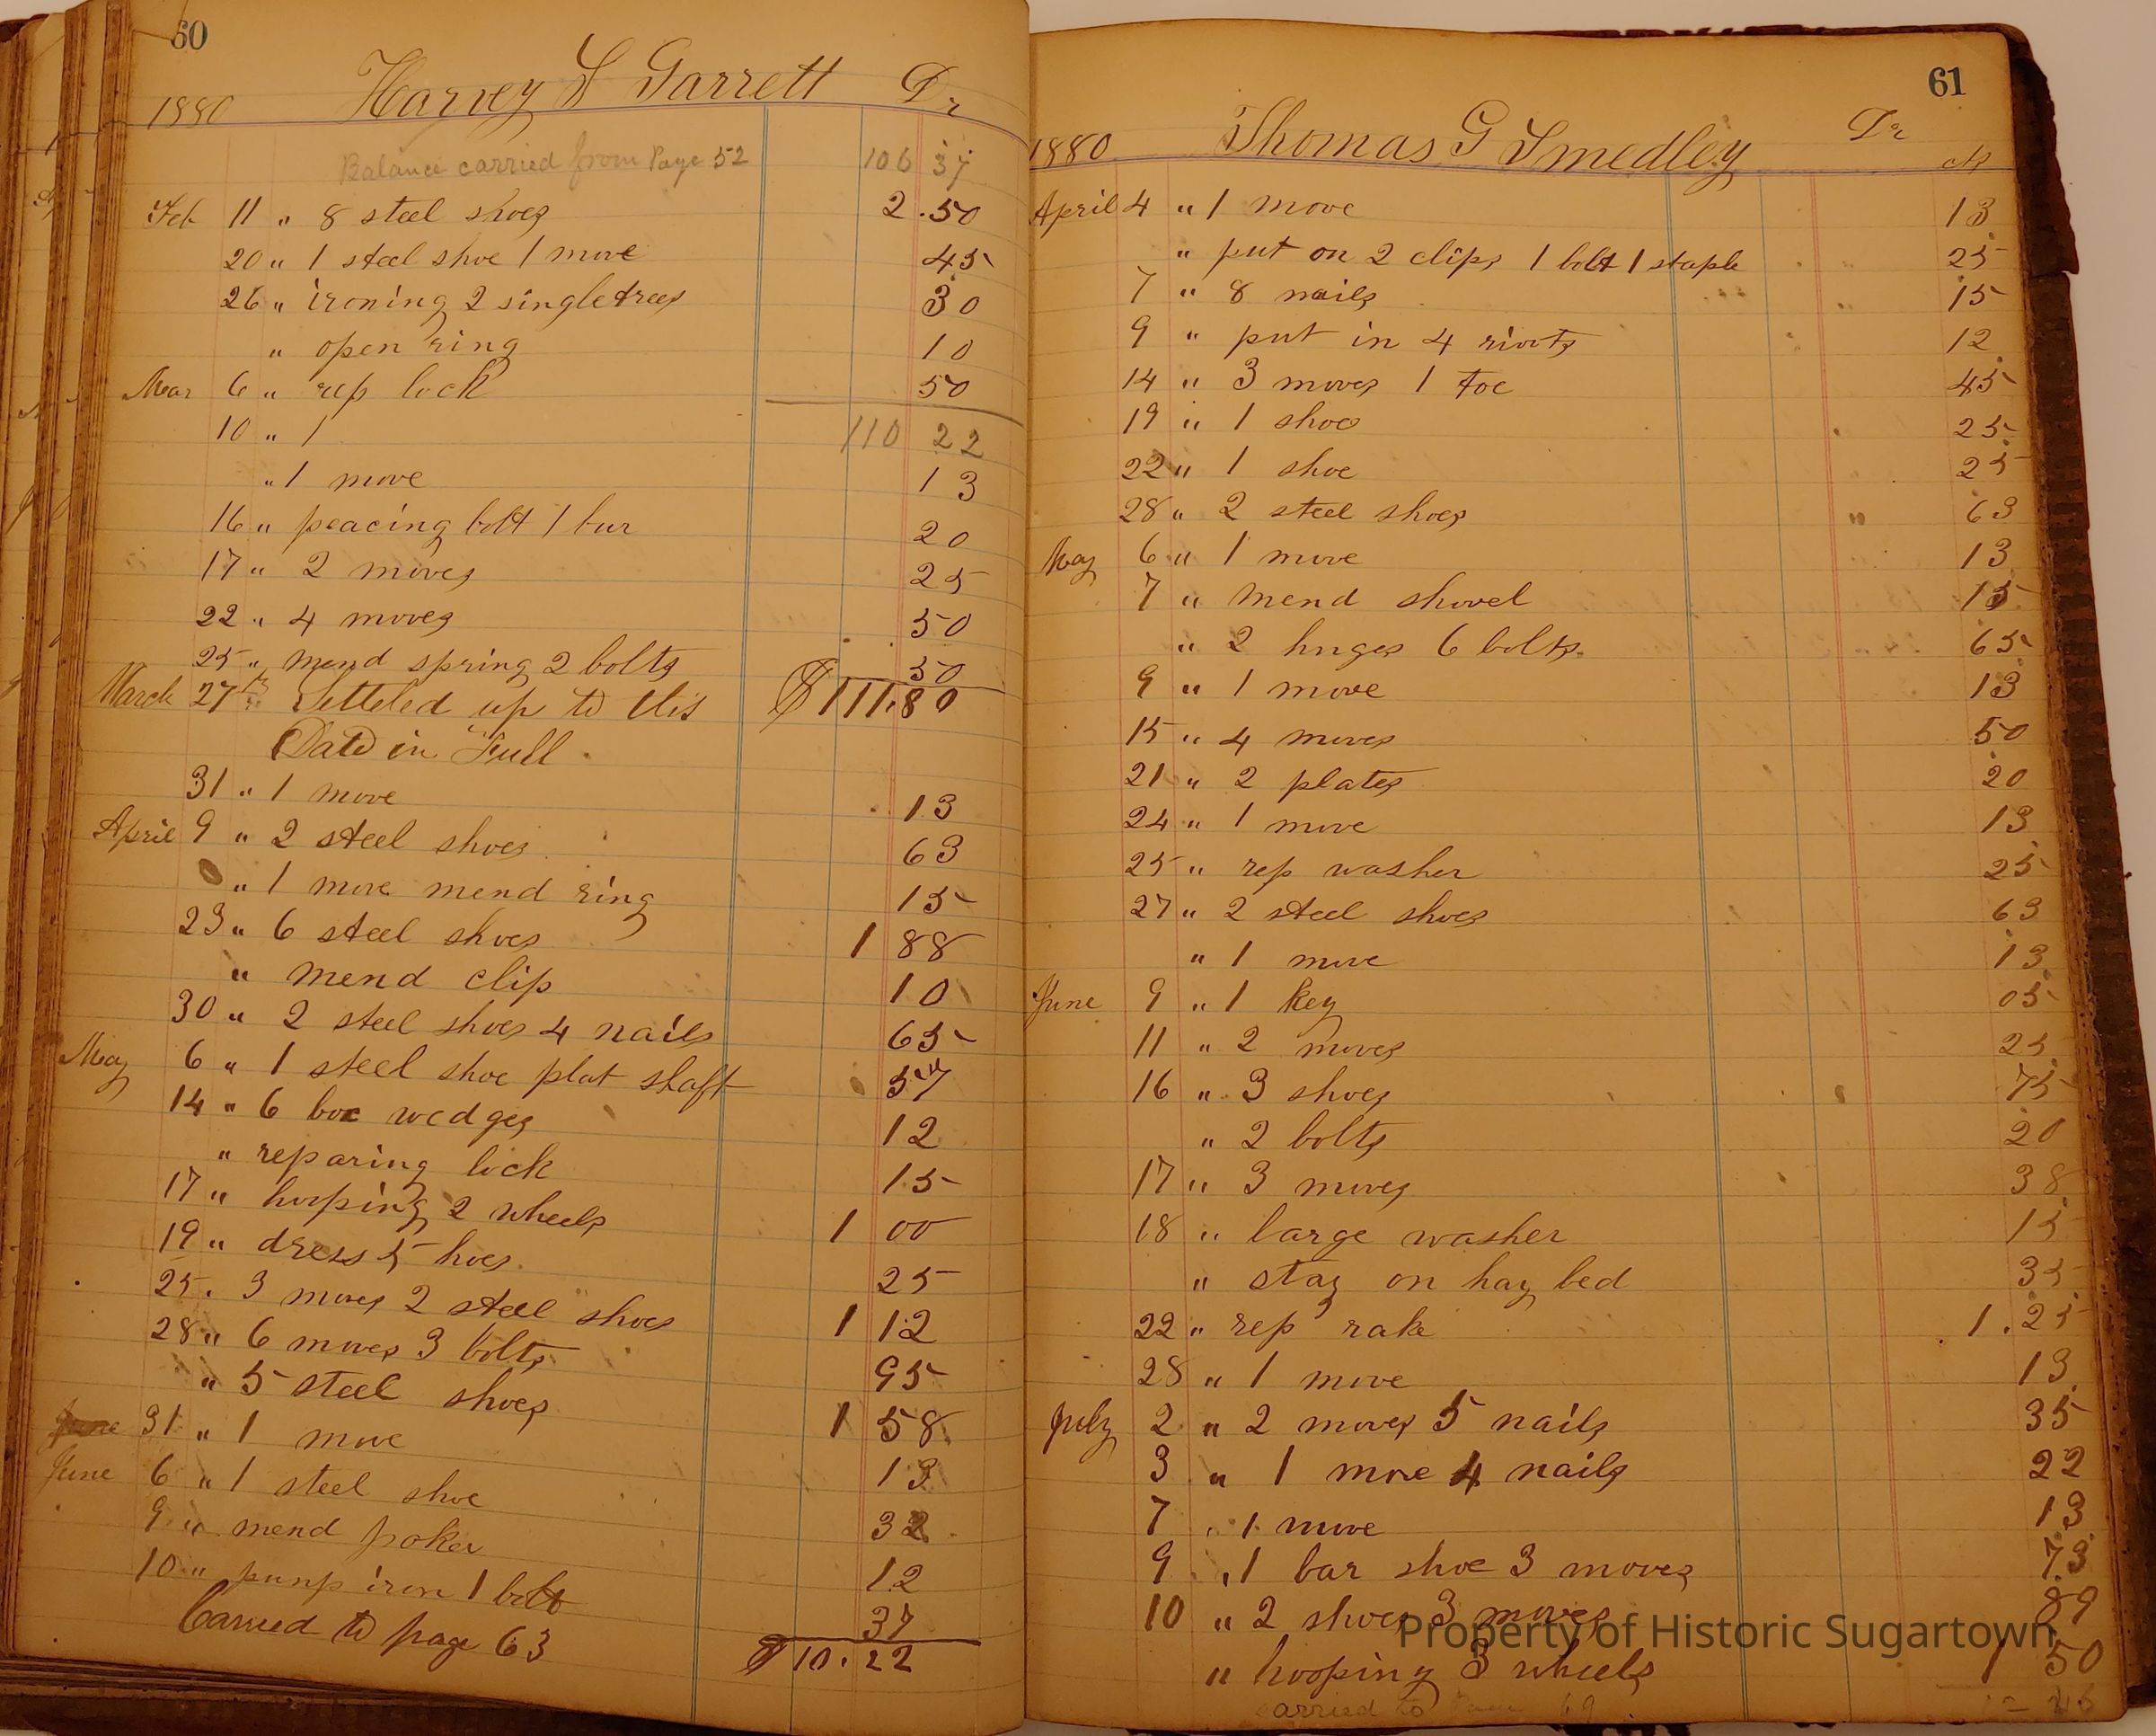 60
1880 Harvey S Garrett Dr
Balance carried from Page 52 106 37
Feb 11 " 8 steel shoes 2.50
20 " 1 steel shoe 1 move 45
26 " ironing 2 singletrees 30
" open ring 10
Mar 6 " rep lock 50
10 " 1 110 22
" 1 move 13
16 " peacing bolt 1 bur 20
17 " 2 moves 25
22 " 4 moves 50
25 " mend spring 2 bolts 50
March 27th Setteled up to this $111.80
Date in Full.
31 " 1 move 13
April 9 " 2 steel shoes 63
" 1 move mend ring 15
23 " 6 steel shoes 1 88
" mend clip 10
30 " 2 steel shoes 4 nails 65
May 6 " 1 steel shoe plat shaft 57
14 " 6 box wedges 12
" reparing lock 15
17 " hooping 2 wheels 1 00
19 " dress 5 hoes 25
25 . 3 moves 2 steel shoes 1 12
28 " 6 moves 3 bolts 95
" 5 steel shoes 1 58
31 " 1 move 13
June 6 " 1 steel shoe 32
9 " mend poker 12
10 " pump iron 1 bolt 37
Carried to page 63 $10.22
61
1880 Thomas G Smedley Dr
April 4 " 1 move 13
" put on 2 clips 1 bolt 1 staple 25
7 " 8 nails 15
9 " put in 4 rivots 12
14 " 3 moves 1 toe 45
19 " 1 shoe 25
22 " 1 shoe 25
28 " 2 steel shoes 63
May 6 " 1 move 13
7 " mend shovel 15
" 2 hnges 6 bolts 65
9 " 1 move 13
15 " 4 moves 50
21 " 2 plates 20
24 " 1 move 13
25 " rep washer 25
27 " 2 steel shoes 63
" 1 move 13
June 9 " 1 key 05
11 " 2 moves 25
16 " 3 shoes 75
" 2 bolts 20
17 " 3 moves 38
18 " large washer 15
" stay on hay bed 35
22 " rep rake 1.25
28 " 1 move 13
July 2 " 2 moves 5 nails 35
3 " 1 move 4 nails 22
7 " 1 move 13
9 " 1 bar shoe 3 moves 73
10 " 2 shoes 3 moves 89
" hooping 3 wheels 1 50
carried to Page 69
Property of Historic Sugartown